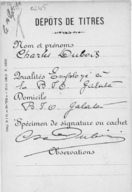 DEPÔTS DE TITRES
Nom et prénoms
Charles Dubois
Qualités Employé a
la B.I.O. Galata
Domicile
B.I.O. Galata
Spécimen de signature ou cachet
Observations